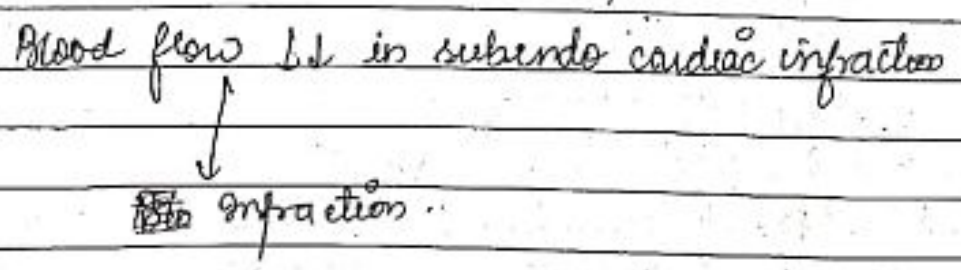 Blood flow ↓↓ in subendo cardiac infraction
↓
Infraction..